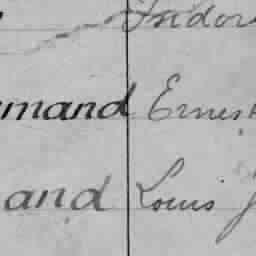 Isidor
mand Ernest
and Louis J